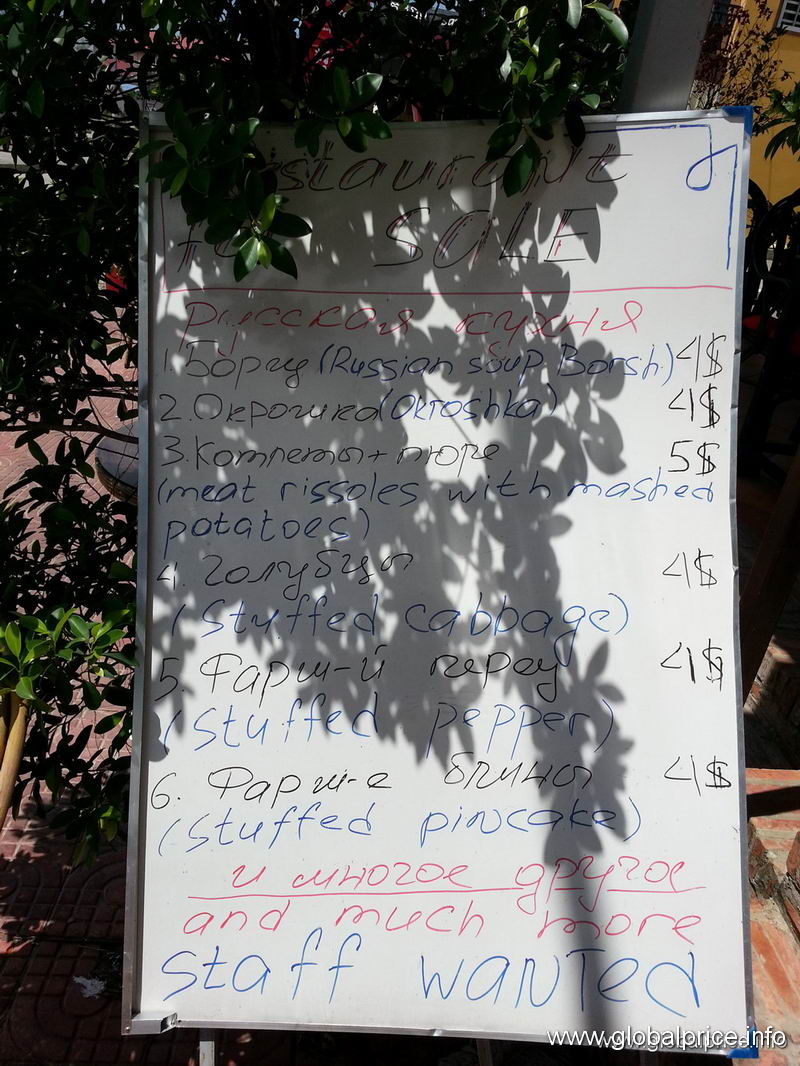 staurant
for SALE
русская кухня
1. Борщ (Russian soup Borsh) 4$
2. Окрошка (Okroshka) 4$
3. Котлеты + пюре 5$
(meat rissoles with mashed
potatoes)
4. Голубцы 4$
(Stuffed cabbage)
5. Фарш-й перец 4$
(Stuffed pepper)
6. Фарш-е блины 4$
(Stuffed pincake)
и многое другое
and much more
staff wanted
www.globalprice.info